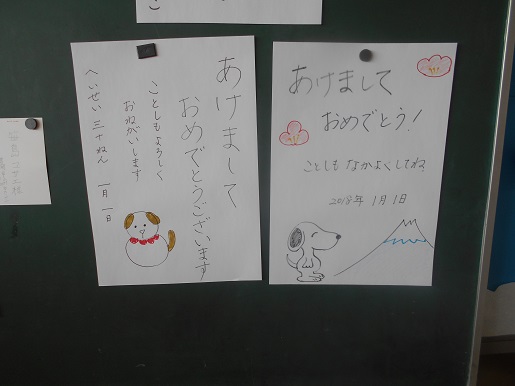 あけまして
おめでとうございます
ことしもよろしく
おねがいします
へいせい三十ねん 一月一日
あけまして
おめでとう!
ことしも なかよくしてね。
2018年 1月1日